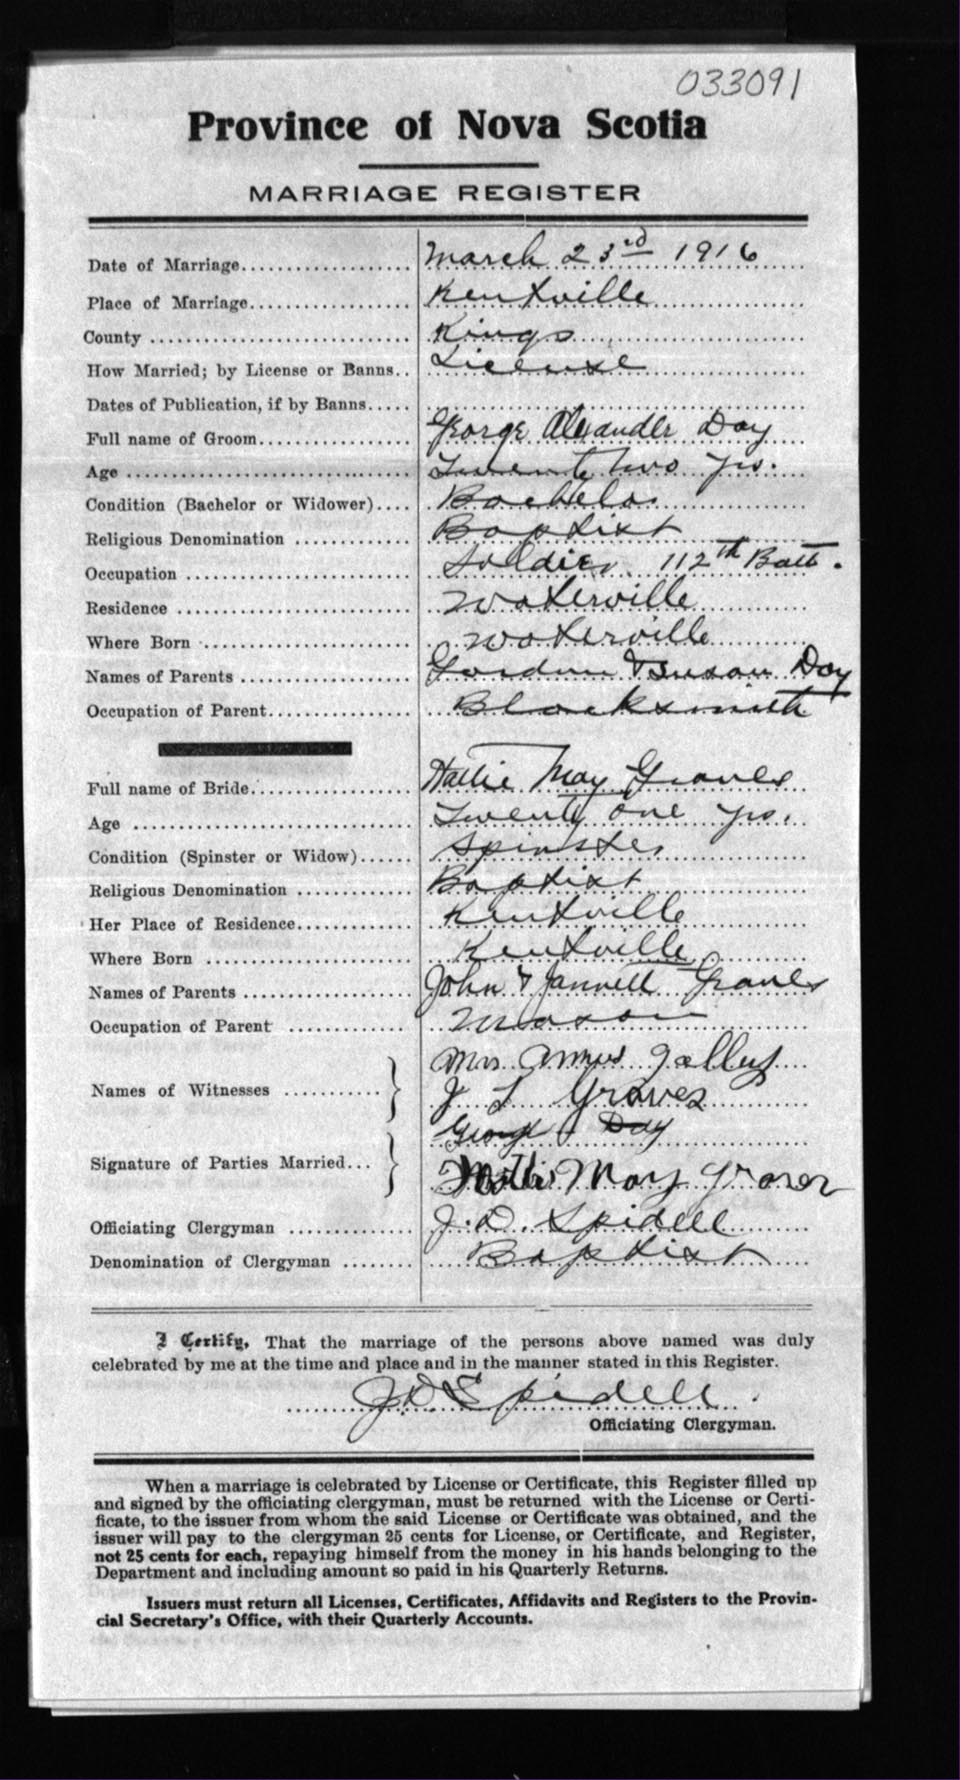 033091
Province of Nova Scotia
MARRIAGE REGISTER
Date of Marriage.................... March 23rd 1916
Place of Marriage.................... Kentville
County .............................. Kings
How Married; by License or Banns.. License
Dates of Publication, if by Banns.....
Full name of Groom.................. George Alexander Day
Age ................................. Twenty two yrs.
Condition (Bachelor or Widower).... Bachelor
Religious Denomination ............. Baptist
Occupation .......................... Soldier 112th Batt.
Residence ........................... Waterville
Where Born .......................... Waterville
Names of Parents .................... Gordon & Susan Day
Occupation of Parent................. Blacksmith
Full name of Bride................... Hattie May Graves
Age ................................. Twenty one yrs.
Condition (Spinster or Widow)...... Spinster
Religious Denomination ............. Baptist
Her Place of Residence............... Kentville
Where Born .......................... Kentville
Names of Parents .................... John & Graves
Occupation of Parent ............... Mason
Mrs.
Names of Witnesses ............ }
J L Graves
George Day
Signature of Parties Married... }
Hattie May Graves
Officiating Clergyman ............... J. D. Spidell
Denomination of Clergyman ........ Baptist
I Certify, That the marriage of the persons above named was duly
celebrated by me at the time and place and in the manner stated in this Register.
J. D. Spidell
Officiating Clergyman.
When a marriage is celebrated by License or Certificate, this Register filled up
and signed by the officiating clergyman, must be returned with the License or Certi-
ficate, to the issuer from whom the said License or Certificate was obtained, and the
issuer will pay to the clergyman 25 cents for License, or Certificate, and Register,
not 25 cents for each, repaying himself from the money in his hands belonging to the
Department and including amount so paid in his Quarterly Returns.
Issuers must return all Licenses, Certificates, Affidavits and Registers to the Provin-
cial Secretary's Office, with their Quarterly Accounts.